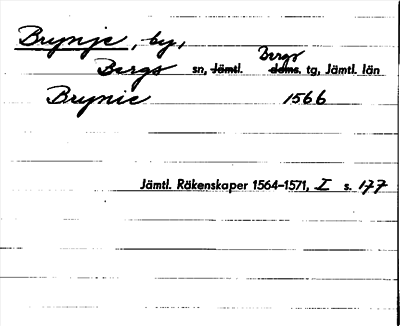 Brynje, by,
Bergs sn, Jämtl. Bergs doms. tg, Jämtl. län
Brynie 1566
Jämtl. Räkenskaper 1564–1571, I s. 177